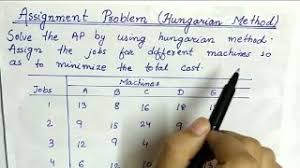 Assignment Problem (Hungarian Method)
Solve the AP by using hungarian method.
Assign the jobs for different machines so
as to minimize the total cost.
Machines
Jobs A B C D E
1 13 8 16 18
2 9 15 24 9
3 12 9 4
4